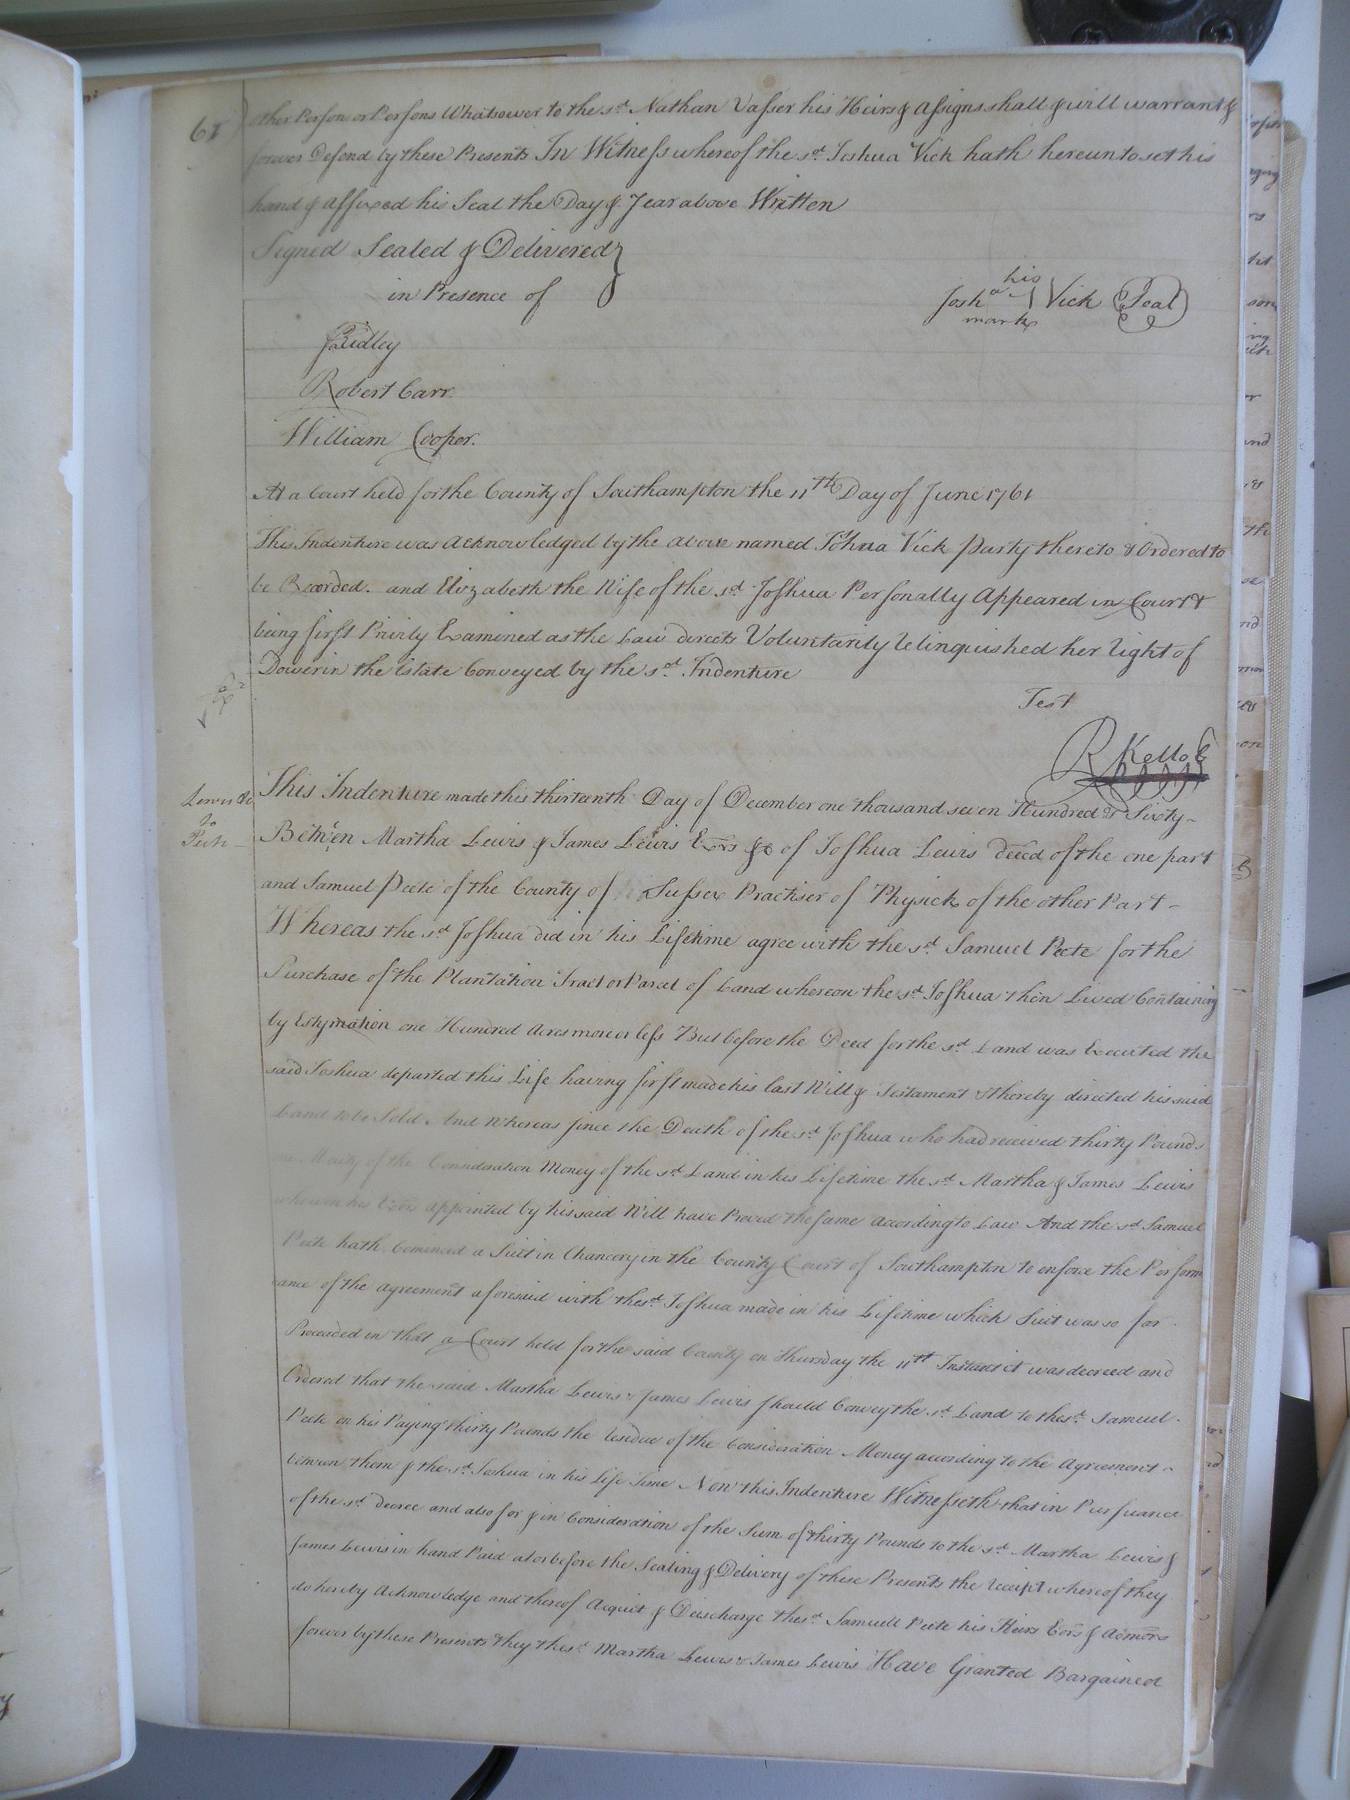 61
other Person or Persons Whatsoever to the sd. Nathan Vasser his Heirs & Assigns shall & will warrant &
forever Defend by these Presents In Witness whereof the sd. Joshua Vick hath hereunto set his
hand & affixed his Seal the Day & Year above Written
Signed Sealed & Delivered
in Presence of
his
Josha. Vick Seal
mark
Ridley
Robert Carr.
William Cooper.
At a Court held for the County of Southampton the 11th Day of June 1761
This Indenture was Acknowledged by the above named Joshua Vick party thereto & Ordered to
be Recorded. and Elizabeth the Wife of the sd. Joshua Personally Appeared in Court &
being first Privily Examined as the Law directs Voluntarily Relinquished her Right of
Dower in the Estate Conveyed by the sd. Indenture
Test
R Kello C
Lewis &c
to
Peete
This Indenture made this thirteenth Day of December one thousand seven Hundred & Sixty
Between Martha Lewis & James Lewis Exors &c of Joshua Lewis decd of the one part
and Samuel Peete of the County of Sussex Practiser of Physick of the other Part
Whereas the sd. Joshua did in his Lifetime agree with the sd. Samuel Peete for the
Purchase of the Plantation Tract or Parcel of Land whereon the sd. Joshua then Lived Containing
by Estymation one Hundred Acres more or less But before the Deed for the sd. Land was Executed the
said Joshua departed this Life having first made his last Will & Testament & thereby directed his said
Land to be Sold And Whereas since the Death of the sd. Joshua who had received thirty Pounds
one Moiety of the Consideration Money of the sd. Land in his Lifetime the sd. Martha & James Lewis
his Exors appointed by his said Will have Proved the same according to Law And the sd. Samuel
Peete hath Comenced a Suit in Chancery in the County Court of Southampton to enforce the Perform
ance of the agreement aforesaid with the sd. Joshua made in his Lifetime which Suit was so far
Proceeded in that a Court held for the said County on Thursday the 11th Instant it was decreed and
Ordered that the said Martha Lewis & James Lewis should Convey the sd. Land to the sd. Samuel
Peete on his Paying thirty Pounds the residue of the Consideration Money according to the Agreement
between them & the sd. Joshua in his Life Time Now this Indenture Witnesseth that in Pursuance
of the sd. decree and also for & in Consideration of the Sum of thirty Pounds to the sd. Martha Lewis &
James Lewis in hand Paid at or before the Sealing & Delivery of these Presents the receipt whereof they
do hereby Acknowledge and thereof Acquit & Discharge the sd. Samuell Peete his Heirs Exors & Admors
forever by these Presents they the sd. Martha Lewis & James Lewis Have Granted Bargained